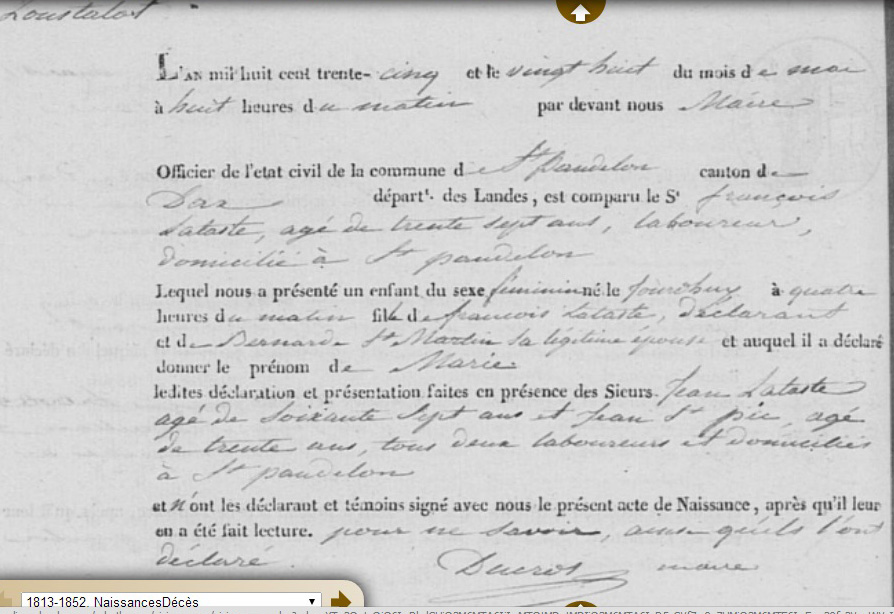 Loustalot
L'AN mil huit cent trente-cinq et le vingt huit du mois de mai
à huit heures du matin par devant nous Maire
Officier de l'etat civil de la commune de St pandelon canton de
Dax départt. des Landes, est comparu le Sr françois
Lataste, agé de trente sept ans, laboureur,
domicilié à St pandelon
Lequel nous a présenté un enfant du sexe féminin né le jourdhuy à quatre
heures du matin fille de françois Lataste, déclarant
et de Bernarde St Martin sa légitime épouse et auquel il a déclaré
donner le prénom de Marie
lesdites déclaration et présentation faites en présence des Sieurs Jean Lataste
agé de soixante sept ans et Jean St pic, agé
de trente ans, tous deux laboureurs et domiciliés
à St pandelon
et n'ont les déclarant et témoins signé avec nous le présent acte de Naissance, après qu'il leur
en a été fait lecture. pour ne savoir, ainsi qu'ils l'ont
déclaré. Ducros maire
1813-1852. NaissancesDécès